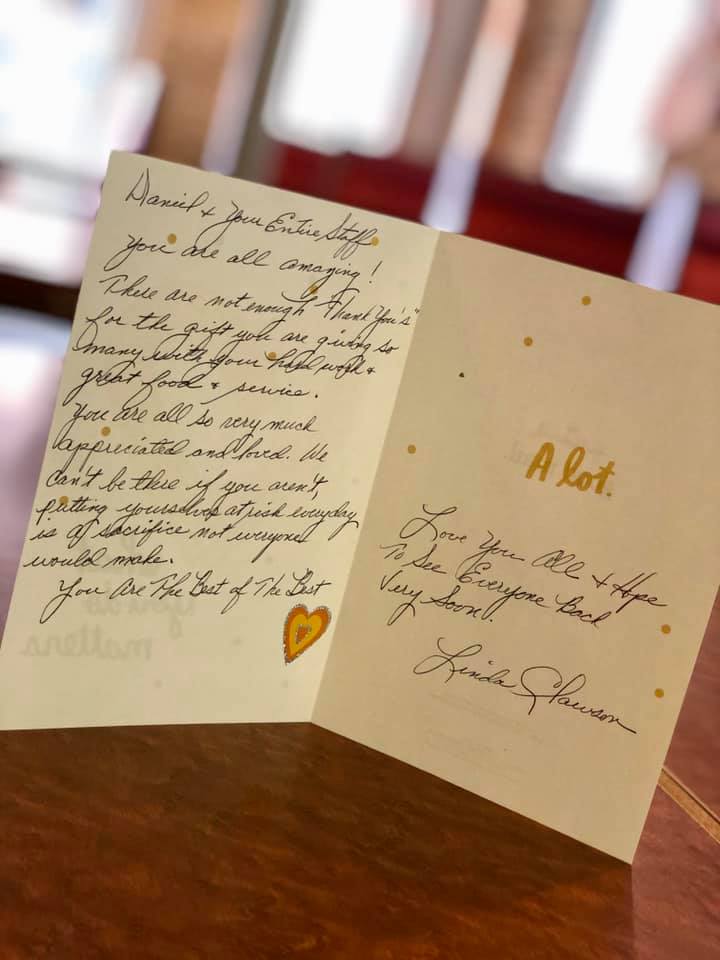 Daniel + Your Entire Staff
You are all amazing!
There are not enough "Thank You's"
for the gift you are giving so
many with your hard work +
great food + service.
You are all so very much
appreciated and loved. We
can't be there if you aren't,
putting yourselves at risk everyday
is a sacrifice not everyone
would make.
You Are The Best of The Best
you do
matters
A lot.
Love You All + Hope
To See Everyone Back
Very Soon.
Linda Clawson